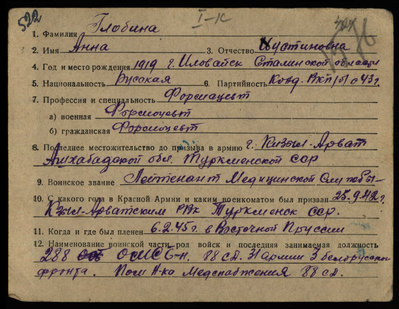 522
I-к
1. Фамилия Глобина
2. Имя Анна 3. Отчество Иустиновна
4. Год и место рождения 1919 г. Иловайск Сталинской области
5. Национальность Русская 6. Партийность Канд. ВКП(б) с 43 г.
7. Профессия и специальность Фармацевт
а) военная Фармацевт
б) гражданская Фармацевт
8. Последнее местожительство до призыва в армию г. Кизыл-Арват
Ашхабадской обл. Туркменской ССР
9. Воинское звание Лейтенант Медицинской Службы
10. С какого года в Красной Армии и каким военкоматом был призван 25.9.42 г.
Кзыл-Арватским РВК Туркменск ССР.
11. Когда и где был пленен 6.2.45 г. в Восточной Пруссии
12. Наименование воинской части, род войск и последняя занимаемая должность
288 ОМСБ-н. 88 сд. 31 армии 3 белорусского
фронта. Пом Н-ка Медснабжения 88 сд.